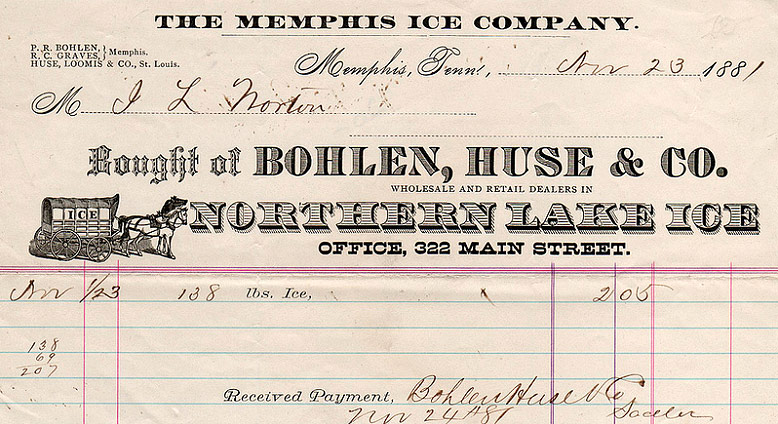 THE MEMPHIS ICE COMPANY.
P. R. BOHLEN, } Memphis.
R. C. GRAVES, }
HUSE, LOOMIS & CO., St. Louis.
Memphis, Tenn., Nov 23 1881
M J L Norton
Bought of BOHLEN, HUSE & CO.
WHOLESALE AND RETAIL DEALERS IN
ICE
NORTHERN LAKE ICE
OFFICE, 322 MAIN STREET.
Nov 1/23 138 lbs. Ice, 2 05
138
69
207
Received Payment, Bohlen Huse & Co
Nov 24th 81